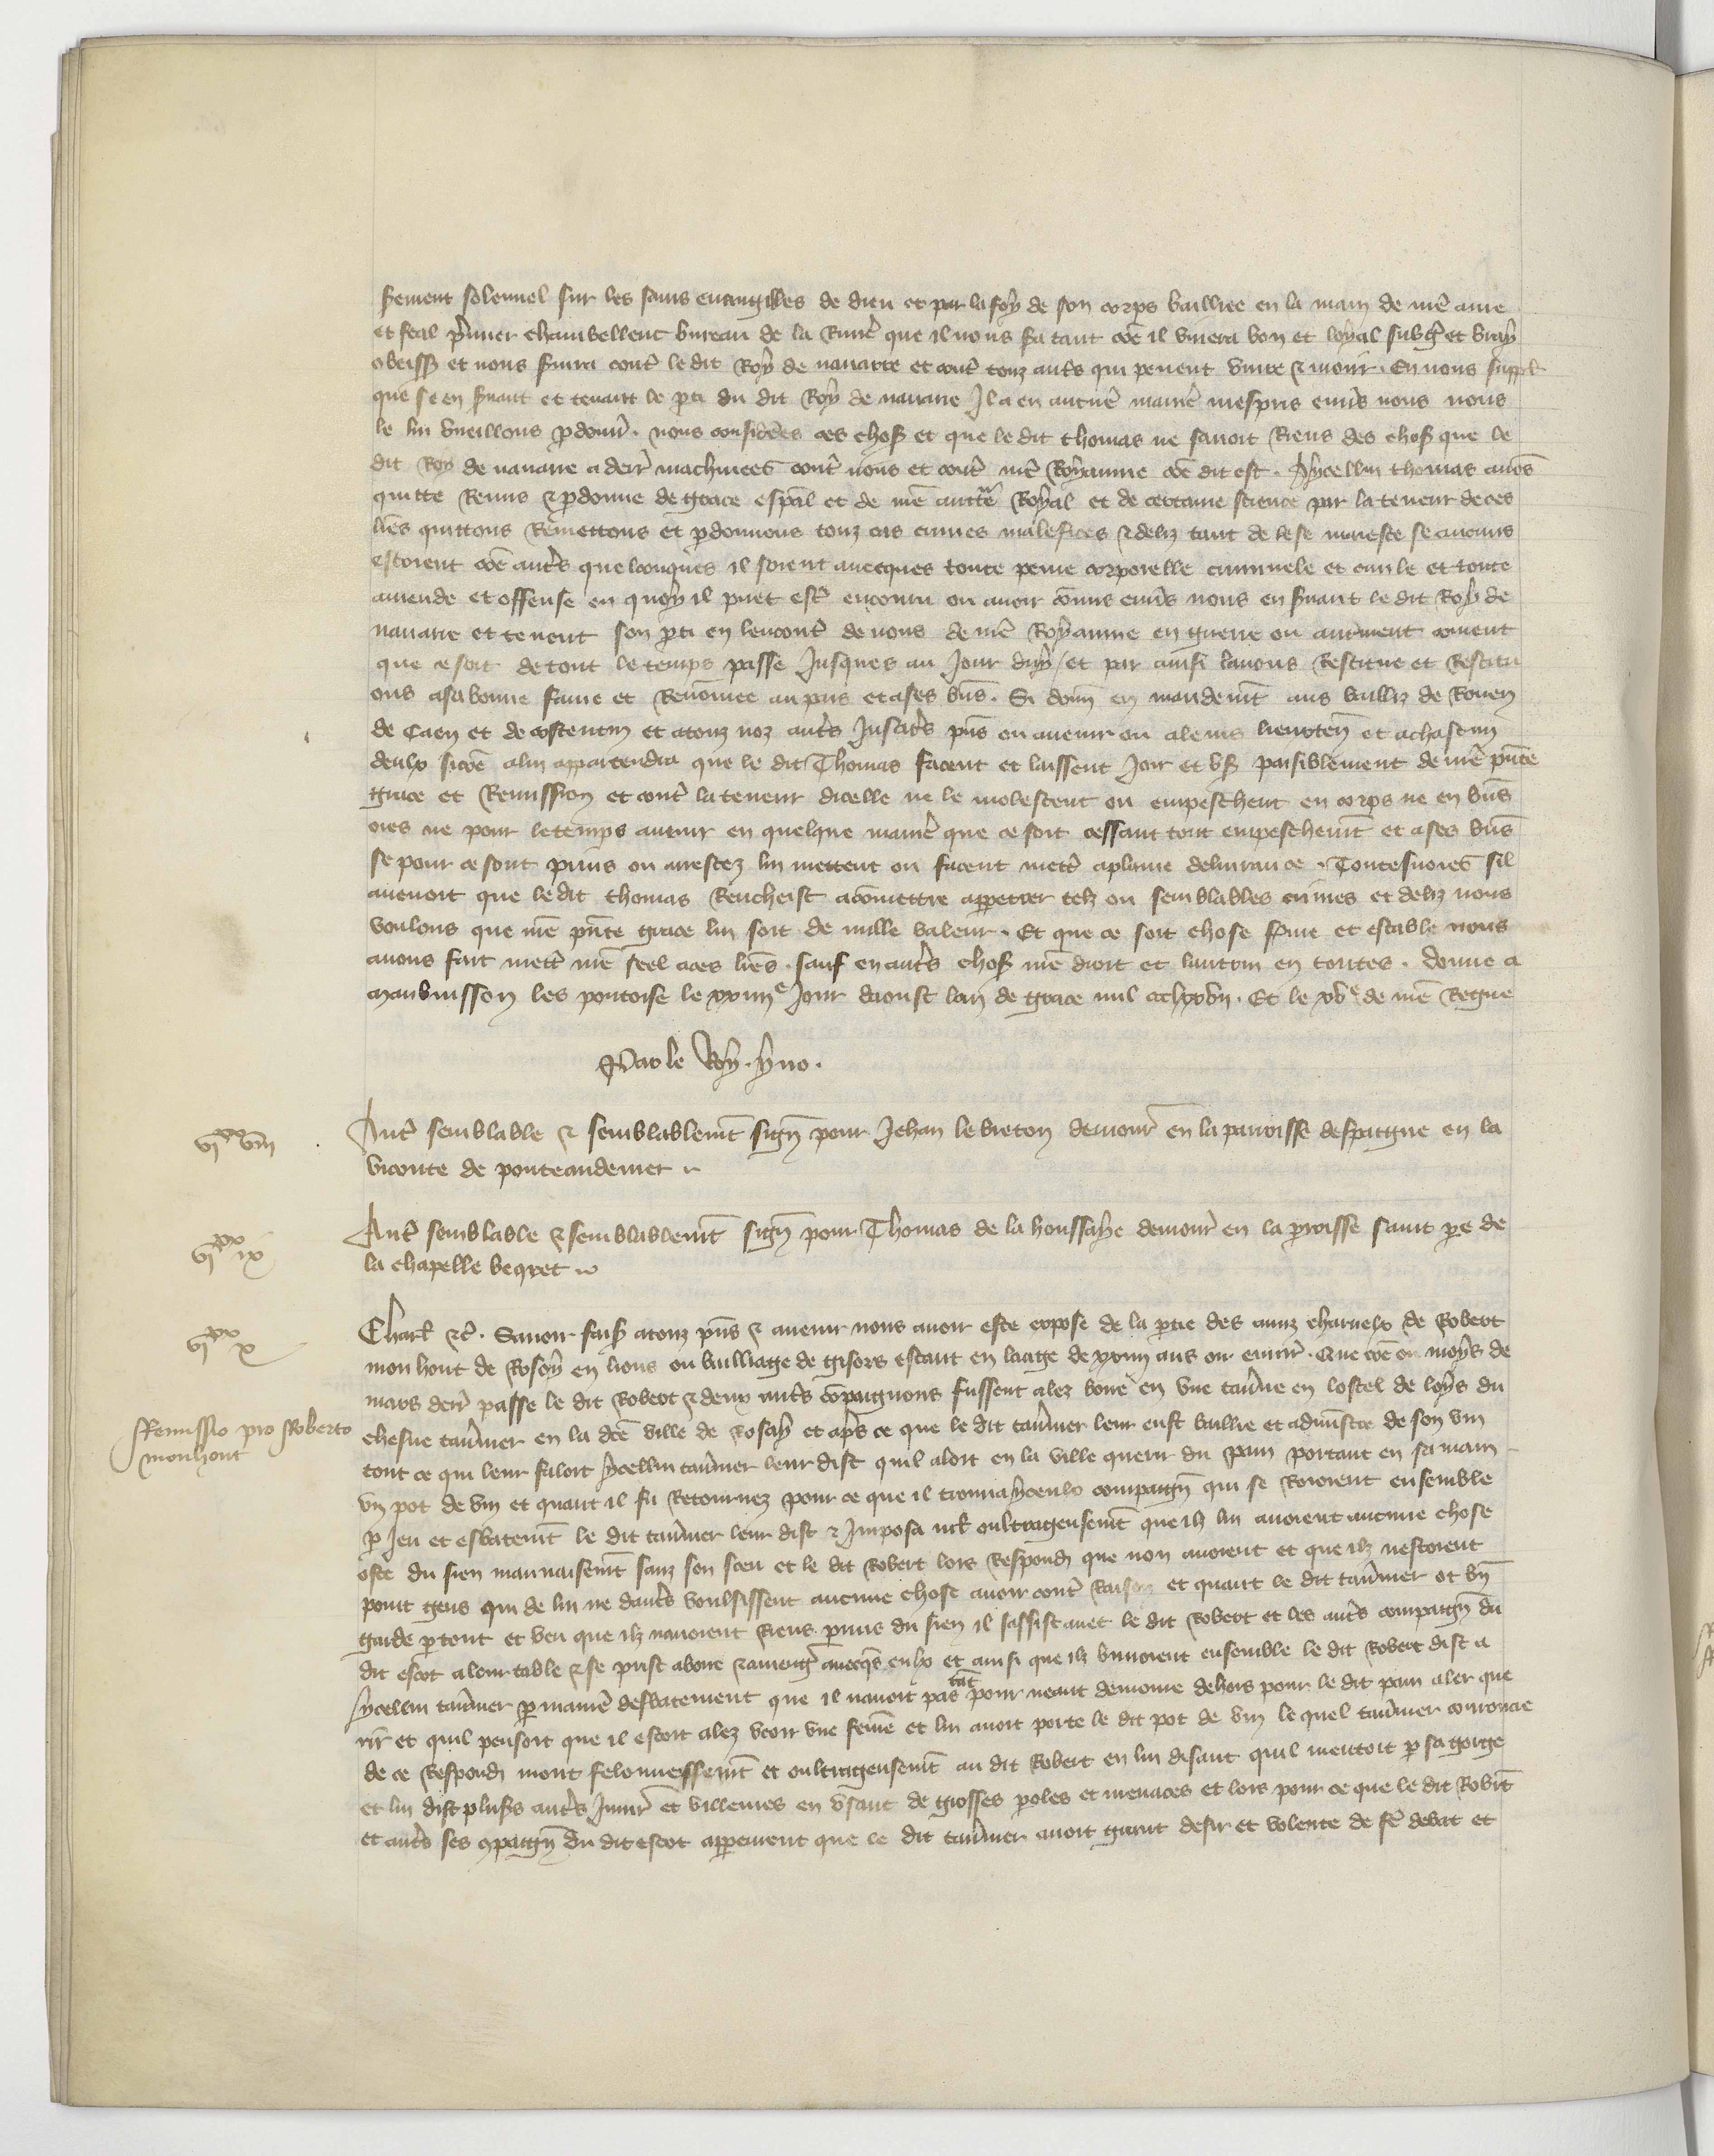 serment solennel sur les sains euangilles de dieu et par la foy de son corps bailliee en la main de nre ame
et feal premier chambellenc bureau de la Riuiere que il nous sera tant come il viura bon et loyal subget et vray
obeiss et nous seruira contre le dit Roy de nauarre et contre touz autres qui peuent viure & mourir. En nous suppl
que se en seruant et tenant le parti du dit Roy de nauarre Il a en aucune maniere mespris enuers nous nous
le lui vueillons pardonner. nous considerees ces choses et que le dit thomas ne sauoit Riens des choses que le
dit Roy de nauarre a derr machinees contre nous et contre nre Royaume come dit est. Aycellui thomas auons
quitte Remis & pardonne de grace espal et de nre auctte Royal et de certaine science par la teneur de ces
lres quittons Remettons et pardonnons touz cas crimes malefices & deliz tant de lese maieste se aucuns
estoient come autres quelconques il soient auecques toute peine corporelle criminele et ciuile et toute
amende et offense en quoy il puet estre encouru ou auoir comis enuers nous en seruant le dit Roy de
nauarre et tenent son parti en lencontre de nous de nre Royaume en guerre ou autrement coment
que ce soit de tout le temps passe Jusques au Jour duy / et par ainsi lauons Restitue et Restitu
ons a sa bonne fame et Renomee au pais et a ses biens. Si donn en mandemt aus bailliz de Rouen
de Caen et de costentin et a touz noz autres Justiciers pns ou auenir ou a leurs lieuxten et a chascun
deulx sicome a lui appartendra que le dit Thomas facent et laissent Joir et vser paisiblement de nre pnte
grace et Remission et contre la teneur dicelle ne le molestent ou empeschent en corps ne en biens
ores ne pour le temps auenir en quelque maniere que ce soit cessant tout empeschemt et a ses biens
se pour ce sont prins ou arrestez lui mettent ou facent mettre a plaine deliurance. Toutesuoies sil
auenoit que le dit thomas Rencheist a comettre appetter telz ou semblables crimes et deliz nous
voulons que nre pnte grace lui soit de nulle valeur. Et que ce soit chose ferme et estable nous
auons fait mettre nre seel a ces lres. sauf en autres choses nre droit et lautrui en toutes. donne a
maubuisson les pontoise le xxiiiie Jour daoust lan de grace mil ccclxxviii. Et le xve de nre Regne
Par le Roy. yuo.
vixx viii
Autre semblable & semblablemt sign pour Jehan le breton demour en la parroisse despaigne en la
viconte de ponteaudemer
vixx ix
Autre semblable & semblablemt sign pour Thomas de la houssaye demour en la parroisse saint pere de
la chapelle becquet
vixx x
Charl &c. Sauoir fais a touz pns & auenir nous auoir este expose de la partie des amiz charnelx de Robert
monhout de Rosoy en lions ou bailliage de gisors estant en laage de xxiiii ans ou enuir. Que come ou moys de
mars derr passe le dit Robert & deux autres compaignons fussent alez boire en vne tauerne en lostel de loys du
Remissio pro Roberto
monhout
chesne tauernier en la dce ville de Rosay et apres ce que le dit tauernier leur eust baillie et administre de son vin
tout ce qui leur faloit ycellui tauernier leur dist quil aloit en la ville querir du pain portant en sa main
vn pot de vin et quant il fu Retournez pour ce que il trouua yceulx compaign qui se Rioient ensemble
par Jeu et esbatemt le dit tauernier leur dist & Imposa oultrageusemt que ilz lui auoient aucune chose
oste du sien mauuaisemt sanz son sceu et le dit Robert lors Respondi que non auoient et que ilz nestoient
point gens qui de lui ne dautres voulsissent aucune chose auoir contre Raison et quant le dit tauernier ot bn
garde par tout et veu que ilz nauoient Riens prins du sien il sassist auec le dit Robert et les autres compaign du
dit escot a leur table & se prist a boire & a menger auecqs eulx et ainsi que ilz buuoient ensemble le dit Robert dist a
ycellui tauernier par maniere desbatement que il nauoit pas tant pour neant demoure dehors pour le dit pain aler que
rir et quil pensoit que il estoit alez veoir vne feme et lui auoit porte le dit pot de vin le quel tauernier courroucie
de ce Respondi mont felonnessemt et oultrageusemt au dit Robert en lui disant quil mentoit par sa gorge
et lui dist pluss autres Iniur et villenies en vsant de grosses paroles et menaces et lors pour ce que le dit Robert
et autres ses compaign du dit escot apperceurent que le dit tauernier auoit grant desir et volente de fe debat et